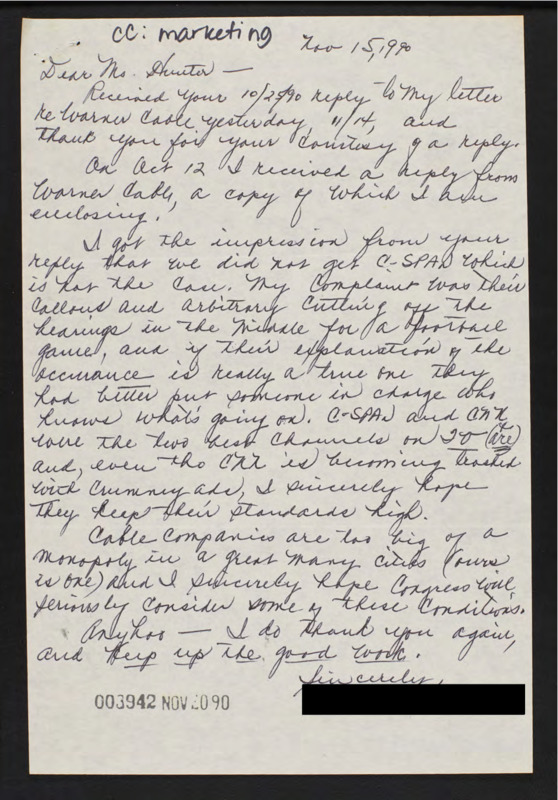 cc: marketing
Nov 15, 1990
Dear Ms. Hunter —
Received your 10/25/90 reply to my letter
re Warner Cable yesterday, 11/14, and
thank you for your courtesy of a reply.
On Oct 12 I received a reply from
Warner Cable, a copy of which I am
enclosing.
I got the impression from your
reply that we did not get C-SPAN which
is not the case. My complaint was their
callous and arbitrary cutting off the
hearings in the middle for a football
game, and if their explanation of the
occurance is really a true one they
had better put someone in charge who
knows what's going on. C-SPAN and CNN
were the two best channels on TV (are)
and, even tho CNN is becoming trashed
with crummey ads, I sincerely hope
they keep their standards high.
Cable companies are too big of a
monopoly in a great many cities (ours
is one) and I sincerely hope Congress will
seriously consider some of these conditions.
Anyhoo — I do thank you again,
and keep up the good work.
Sincerely,
003942 NOV 20 90